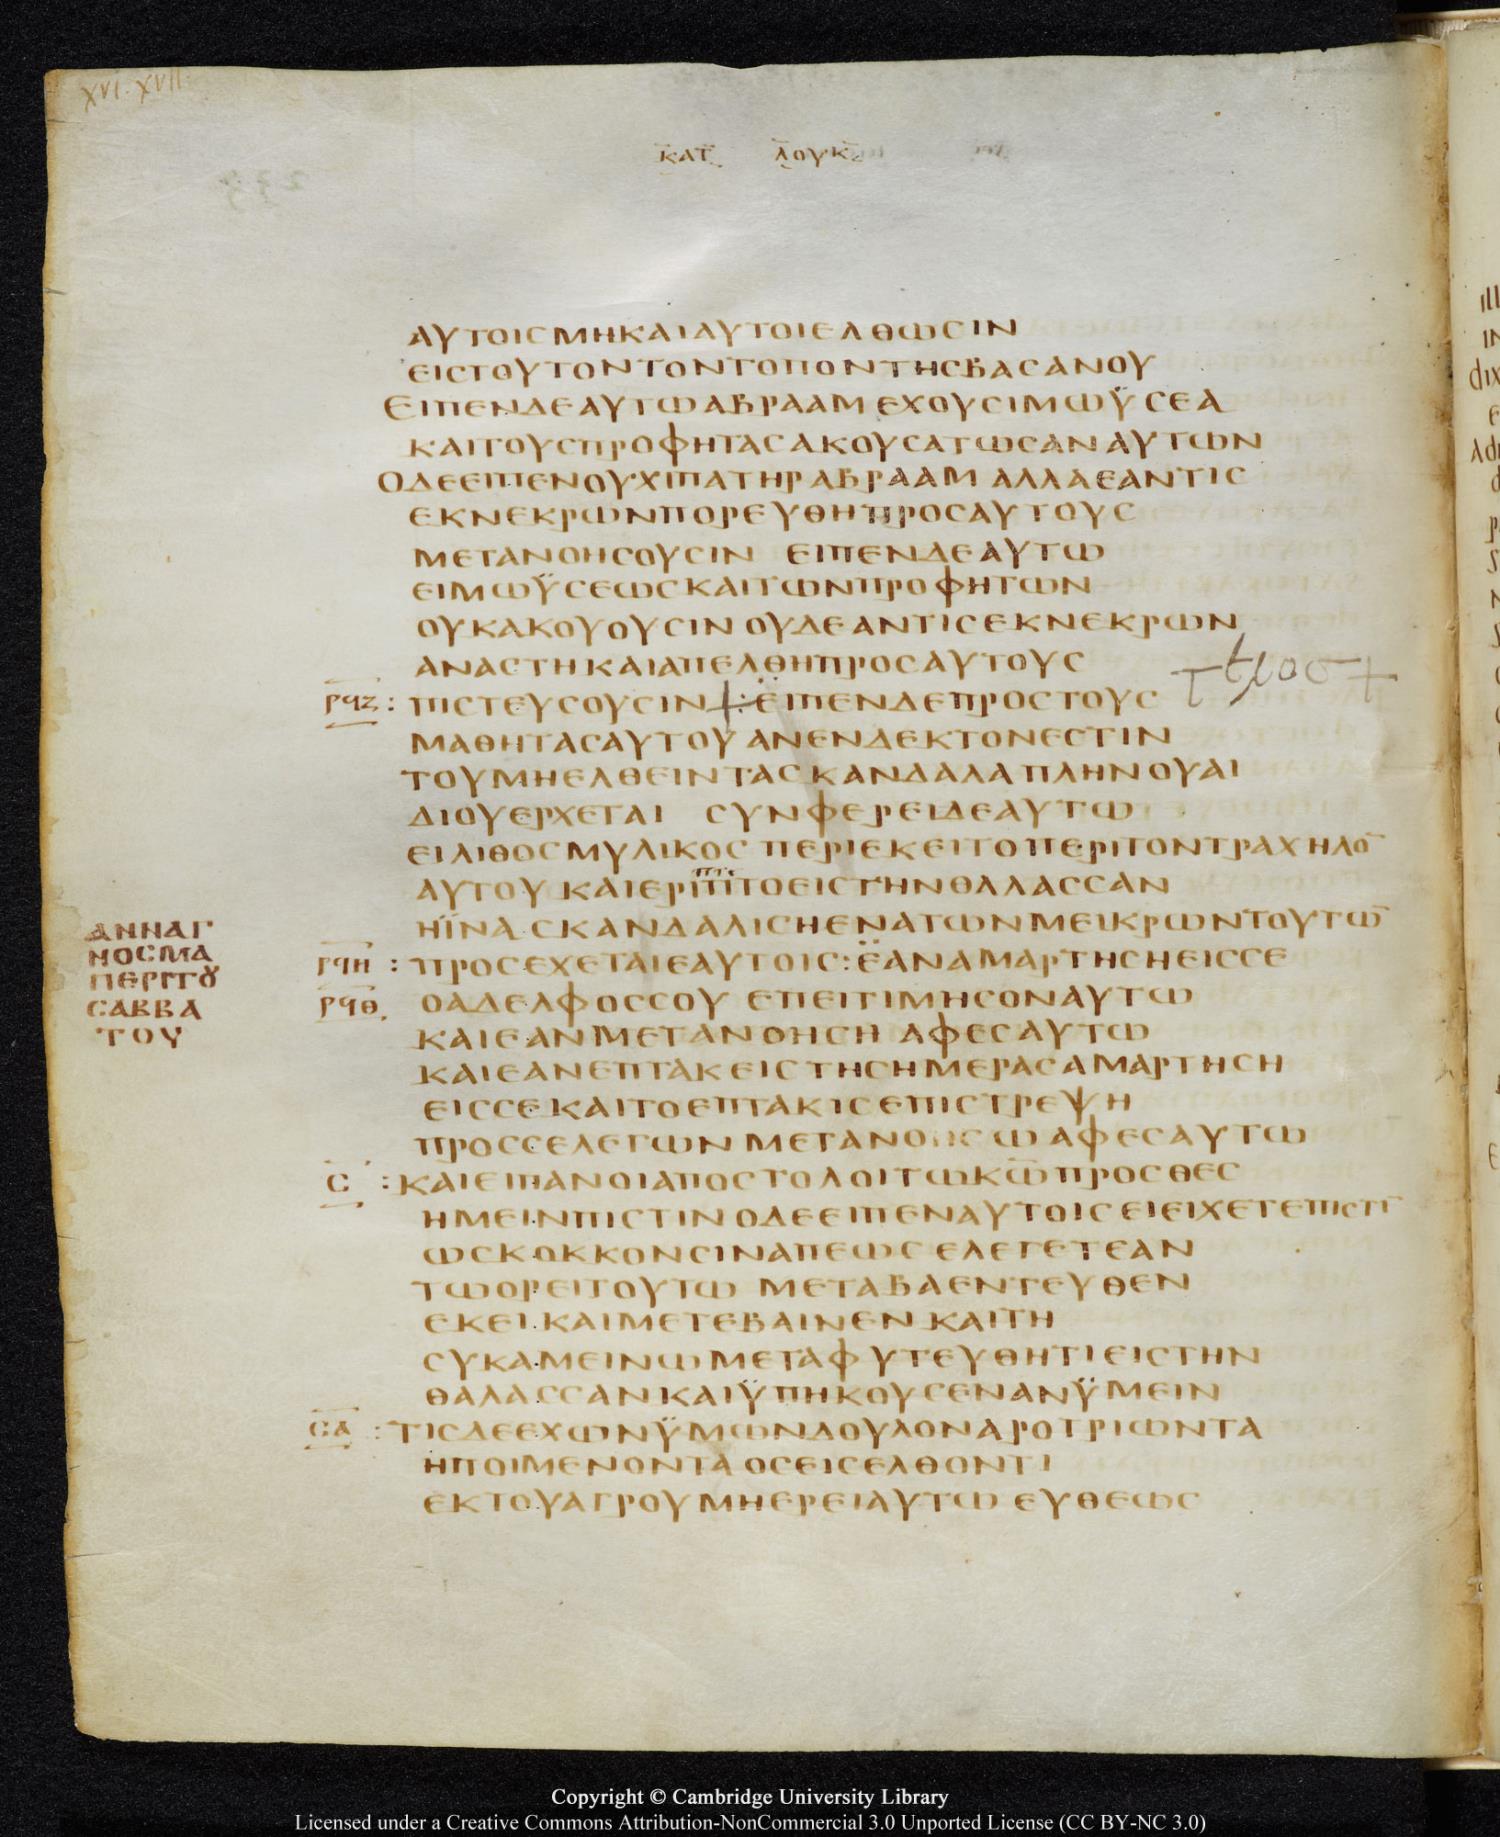 XVI. XVII.
ΚΑΤ ΛΟΥΚ
ΑΥΤΟΙϹΜΗΚΑΙΑΥΤΟΙΕΛΘΩϹΙΝ
ΕΙϹΤΟΥΤΟΝΤΟΝΤΟΠΟΝΤΗϹΒΑϹΑΝΟΥ
ΕΙΠΕΝΔΕΑΥΤΩΑΒΡΑΑΜ ΕΧΟΥϹΙΜΩΫϹΕΑ
ΚΑΙΤΟΥϹΠΡΟΦΗΤΑϹΑΚΟΥϹΑΤΩϹΑΝΑΥΤΩΝ
ΟΔΕΕΙΠΕΝΟΥΧΙΠΑΤΗΡΑΒΡΑΑΜ ΑΛΛΑΕΑΝΤΙϹ
ΕΚΝΕΚΡΩΝΠΟΡΕΥΘΗΠΡΟϹΑΥΤΟΥϹ
ΜΕΤΑΝΟΗϹΟΥϹΙΝ ΕΙΠΕΝΔΕΑΥΤΩ
ΕΙΜΩΫϹΕΩϹΚΑΙΤΩΝΠΡΟΦΗΤΩΝ
ΟΥΚΑΚΟΥΟΥϹΙΝ ΟΥΔΕΑΝΤΙϹΕΚΝΕΚΡΩΝ
ΑΝΑϹΤΗΚΑΙΑΠΕΛΘΗΠΡΟϹΑΥΤΟΥϹ
ΡϤΖ : ΠΙϹΤΕΥϹΟΥϹΙΝ : ΕΙΠΕΝΔΕΠΡΟϹΤΟΥϹ
ΜΑΘΗΤΑϹΑΥΤΟΥ ΑΝΕΝΔΕΚΤΟΝΕϹΤΙΝ
ΤΟΥΜΗΕΛΘΕΙΝΤΑϹΚΑΝΔΑΛΑ ΠΛΗΝΟΥΑΙ
ΔΙΟΥΕΡΧΕΤΑΙ ϹΥΝΦΕΡΕΙΔΕΑΥΤΩ
ΕΙΛΙΘΟϹΜΥΛΙΚΟϹ ΠΕΡΙΕΚΕΙΤΟΠΕΡΙΤΟΝΤΡΑΧΗΛΟ̅
ΑΥΤΟΥ ΚΑΙΕΡΙΠΤΟΕΙϹΤΗΝΘΑΛΑϹϹΑΝ
ΗΪΝΑ ϹΚΑΝΔΑΛΙϹΗΕΝΑΤΩΝΜΕΙΚΡΩΝΤΟΥΤΩ̅
ΑΝΝΑΓ
ΝΟϹΜΑ
ΠΕΡΙΤȢ
ϹΑΒΒΑ
ΤΟΥ
ΡϤΗ : ΠΡΟϹΕΧΕΤΑΙΕΑΥΤΟΙϹ: ΕΑΝΑΜΑΡΤΗϹΗΕΙϹϹΕ
ΡϤΘ ΟΑΔΕΛΦΟϹϹΟΥ ΕΠΕΙΤΙΜΗϹΟΝΑΥΤΩ
ΚΑΙΕΑΝΜΕΤΑΝΟΗϹΗ ΑΦΕϹΑΥΤΩ
ΚΑΙΕΑΝΕΠΤΑΚΕΙϹΤΗϹΗΜΕΡΑϹΑΜΑΡΤΗϹΗ
ΕΙϹϹΕ ΚΑΙΤΟΕΠΤΑΚΙϹΕΠΙϹΤΡΕΨΗ
ΠΡΟϹϹΕΛΕΓΩΝ ΜΕΤΑΝΟΗϹΩ ΑΦΕϹΑΥΤΩ
Ϲ : ΚΑΙΕΙΠΑΝΟΙΑΠΟϹΤΟΛΟΙΤΩΚΩ̅ΠΡΟϹΘΕϹ
ΗΜΕΙΝΠΙϹΤΙΝ ΟΔΕΕΙΠΕΝΑΥΤΟΙϹ ΕΙΕΙΧΕΤΕΠΙϹΤΙ̅
ΩϹΚΟΚΚΟΝϹΙΝΑΠΕΩϹ ΕΛΕΓΕΤΕΑΝ
ΤΩΟΡΕΙΤΟΥΤΩ ΜΕΤΑΒΑΕΝΤΕΥΘΕΝ
ΕΚΕΙ ΚΑΙΜΕΤΕΒΑΙΝΕΝ ΚΑΙΤΗ
ϹΥΚΑΜΕΙΝΩΜΕΤΑΦΥΤΕΥΘΗΤΙΕΙϹΤΗΝ
ΘΑΛΑϹϹΑΝΚΑΙΫΠΗΚΟΥϹΕΝΑΝΫΜΕΙΝ
ϹΑ : ΤΙϹΔΕΕΧΩΝΫΜΩΝΔΟΥΛΟΝΑΡΟΤΡΙΩΝΤΑ
ΗΠΟΙΜΕΝΟΝΤΑ ΟϹΕΙϹΕΛΘΟΝΤΙ
ΕΚΤΟΥΑΓΡΟΥ ΜΗΕΡΕΙΑΥΤΩ ΕΥΘΕΩϹ
Copyright © Cambridge University Library
Licensed under a Creative Commons Attribution-NonCommercial 3.0 Unported License (CC BY-NC 3.0)